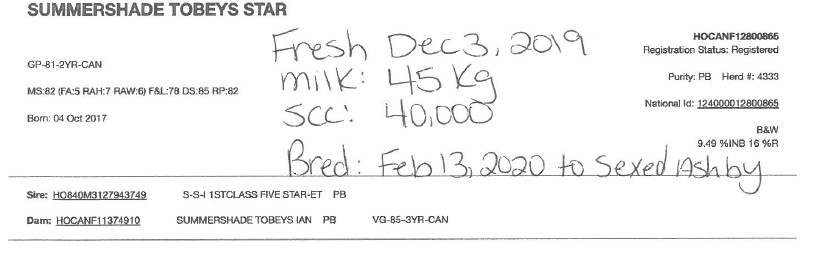 SUMMERSHADE TOBEYS STAR
Fresh Dec 3, 2019
HOCANF12800865
Registration Status: Registered
GP-81-2YR-CAN
milk: 45 Kg
Purity: PB Herd #: 4333
MS:82 (FA:5 RAH:7 RAW:6) F&L:78 DS:85 RP:82
SCC: 40,000
National Id: 124000012800865
Born: 04 Oct 2017
B&W
9.49 %INB 16 %R
Bred: Feb 13, 2020 to Sexed Ashby
Sire: HO840M3127943749 S-S-I 1STCLASS FIVE STAR-ET PB
Dam: HOCANF11374910 SUMMERSHADE TOBEYS IAN PB VG-85-3YR-CAN